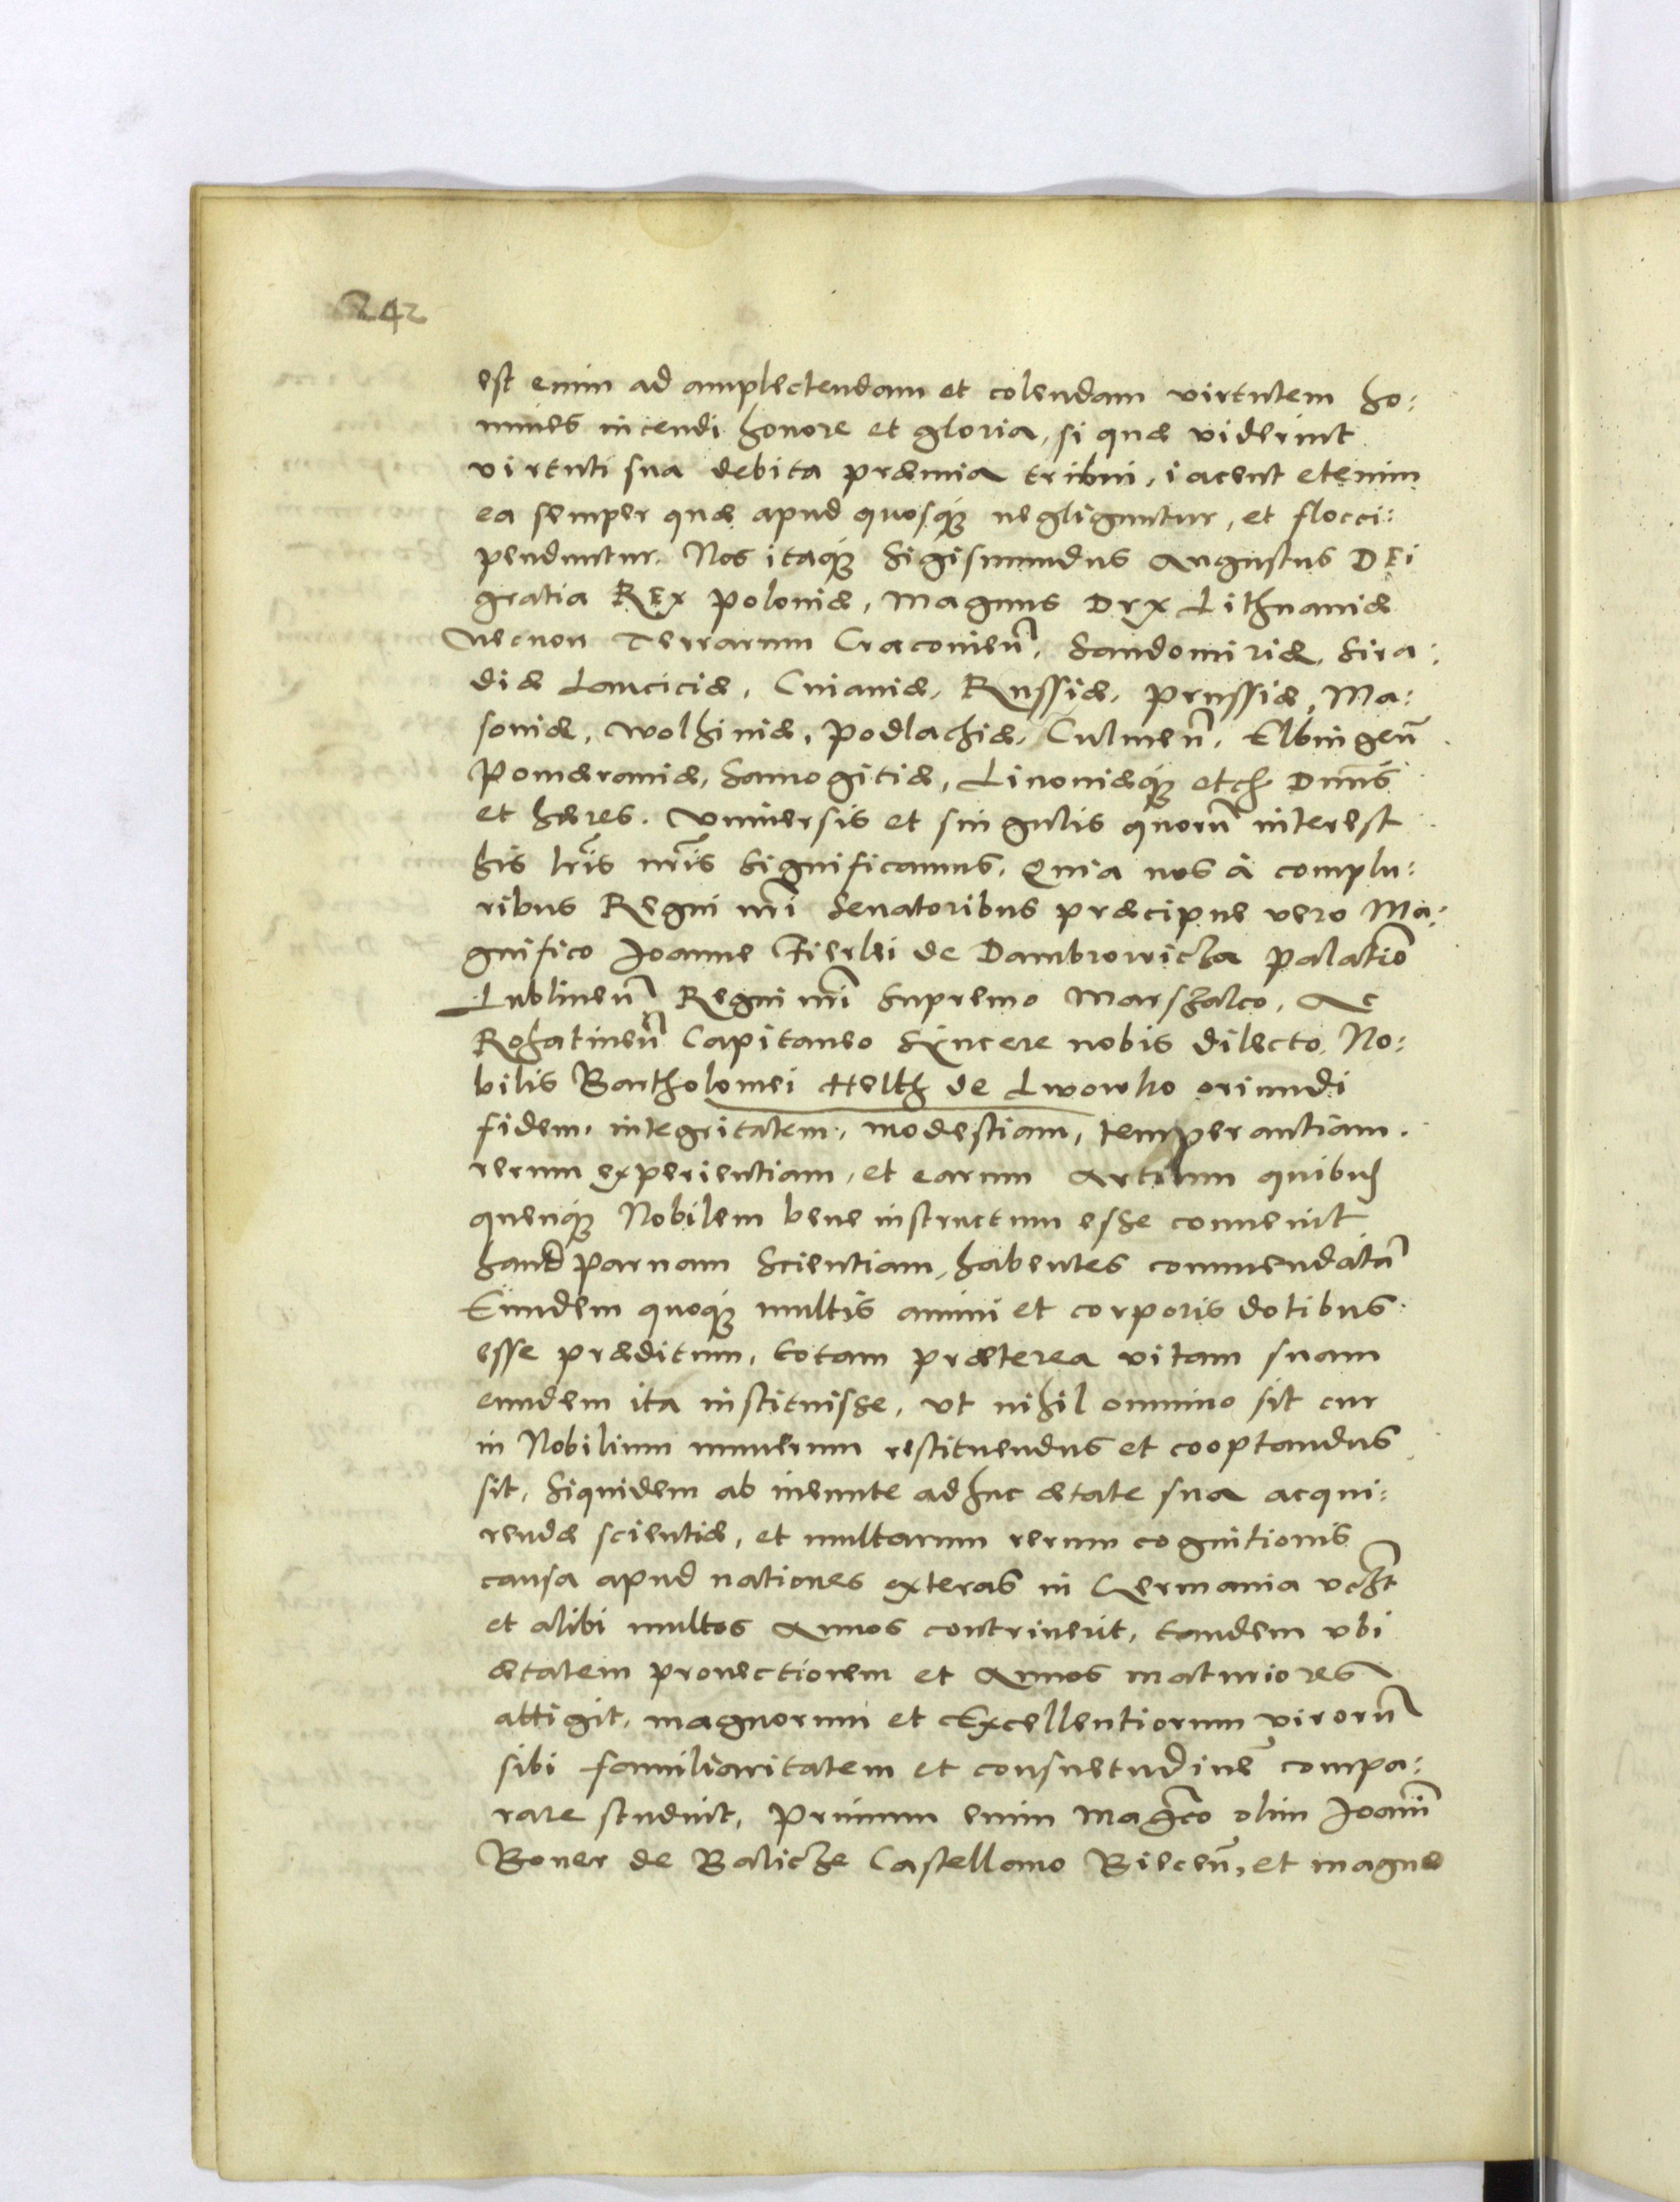 242
est enim ad amplectendam et colendam virtutem ho:
mines incendi honore et gloria, si quæ viderint
virtuti sua debita præmia tribui, iacent etenim
ea semper quæ apud quosq negliguntur, et flocci:
penduntur. Nos itaq Sigismundus Augustus DEi
gratia REx Poloniæ, Magnus Dux Lithuaniæ
Necnon Terrarum Cracovien̄, Sandomiriæ, Sira:
diæ Lanciciæ, Cuiaviæ, Russiæ, Prussiæ, Ma:
soviæ, Wolhiniæ, Podlachiæ, Culmen̄, Elbingen̄
Pomæraniæ, Samogitiæ, Livoniæq etc Dnus
et hæres. Universis et singulis quorū interest
his lr̄is nr̄is Significamus, Quia nos à complu:
ribus Regni nr̄i Senatoribus præcipue vero Ma:
gnifico Joanne Fierlei de Dambrowicza Palatino
Lublinen̄ Regni nr̄i Supremo Marshalco, Ac
Rohatinen̄ Capitaneo Syncere nobis dilecto, No:
bilis Bartholomei Helth de Lwowko oriundi
fidem, integritatem, modestiam, temperantiam.
rerum experientiam, et earum Artium quibus
quenq Nobilem bene instructum esse convenit
haud parvam Scientiam, habentes commendatā
Eundem quoq multis animi et corporis dotibus
esse præditum, totam præterea vitam suam
eundem ita instituisse, ut nihil omnino sit cur
in Nobilium numerum restituendus et cooptandus
sit, Siquidem ab ineunte adhuc ætate sua acqui:
rendæ scientiæ, et multarum rerum cognitionis
causa apud nationes exteras in Germania
et alibi multos Annos contriverit, tandem ubi
ætatem provectiorem et Annos maturiores
attigit, magnorum et Excellentiorum virorū
sibi familiaritatem et consuetudinē compa:
rare studuit, Primum enim Magco olim Joanni
Boner de Balicze Castellano Biecen̄, et magno